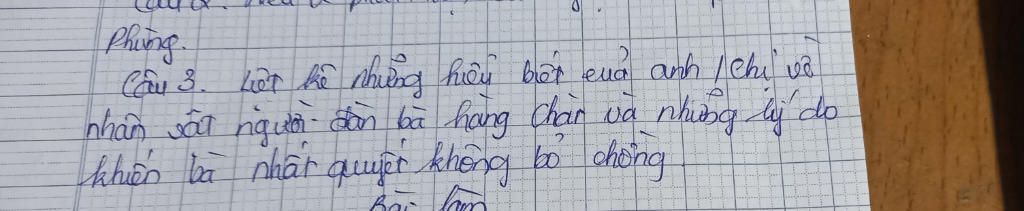 Phùng.
Câu 3. Liệt kê những hiểu biết của anh / chị về
nhân vật người đàn bà hàng chài và những lý do
khiến bà nhất quyết không bỏ chồng
Bài làm